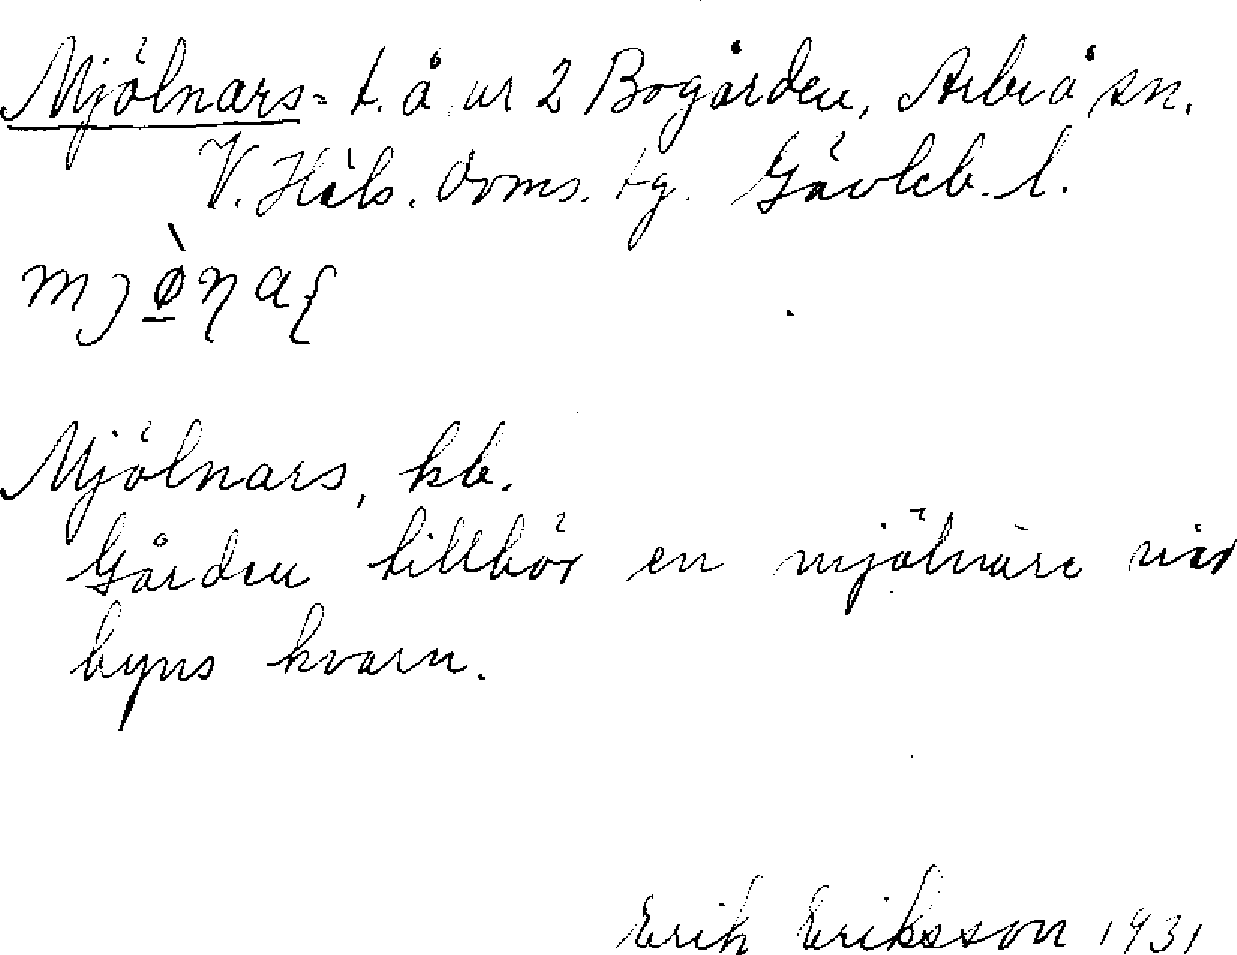 Mjölnars- t. å nr 2 Bogården, Arbrå sn.
V. Häls. doms. tg. Gävleb. l.
mjø̠̀ɳaʂ
Mjölnars, kb.
Gården tillhör en mjölnare vid
byns kvarn.
Erik Eriksson 1931